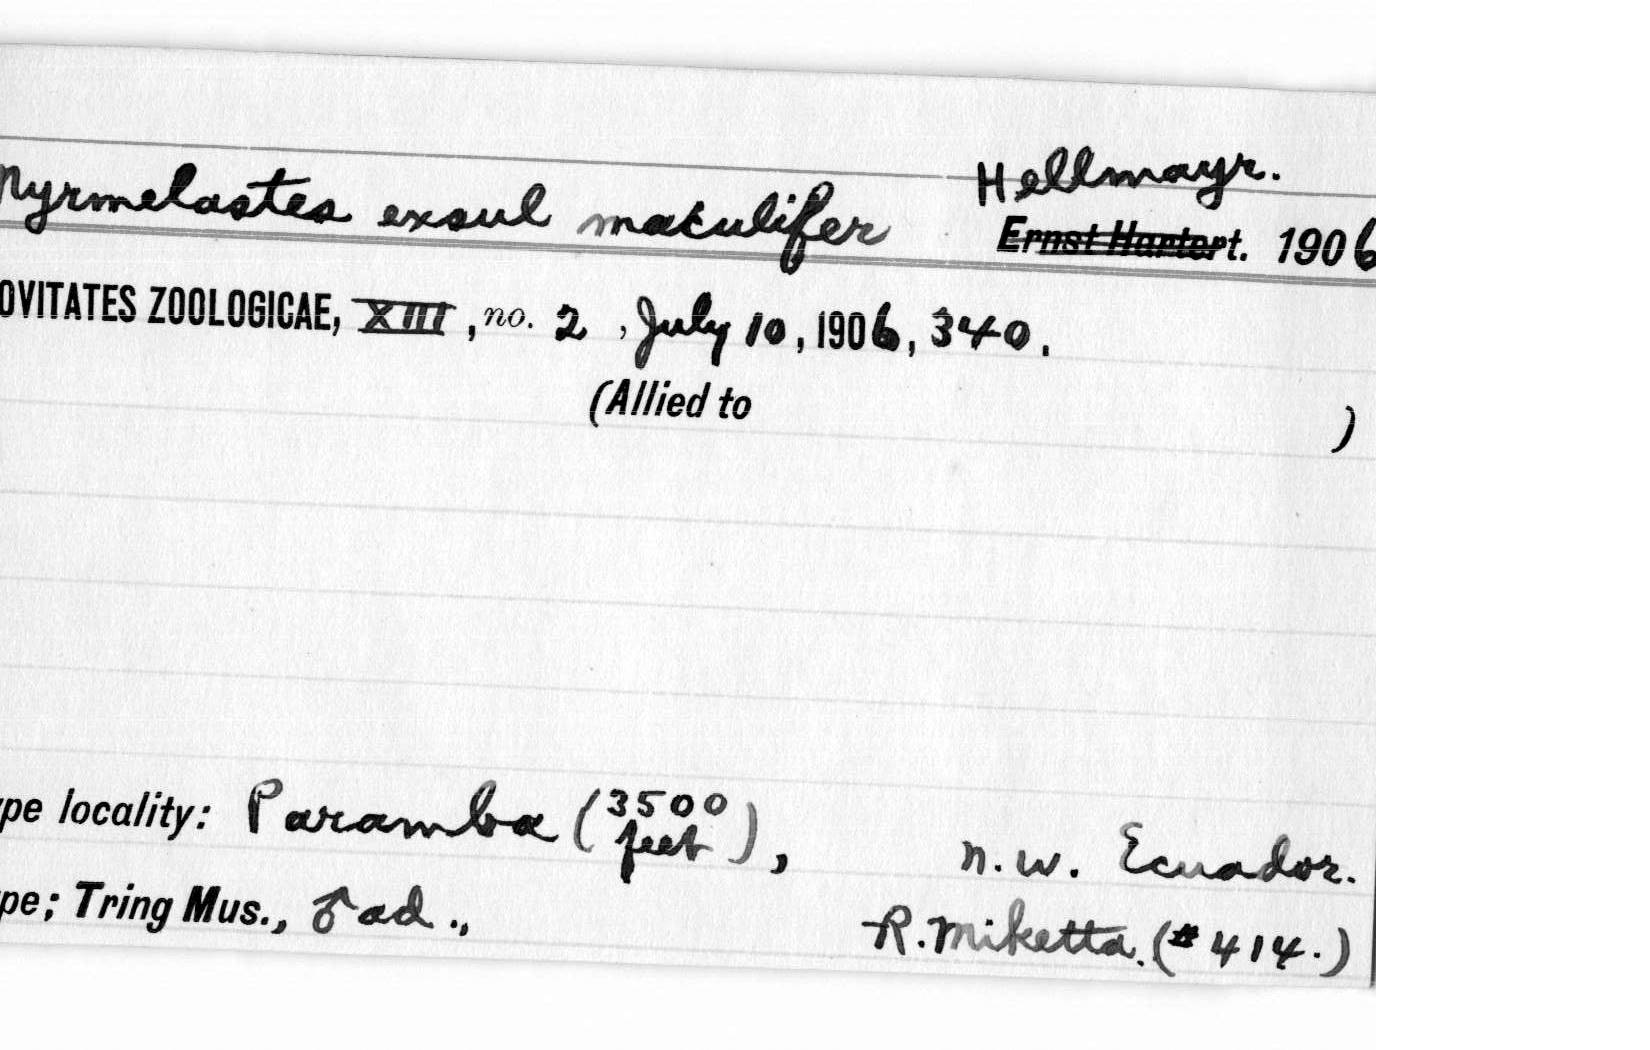 Myrmelastes exsul maculifer Hellmayr.
Ernst Hartert. 1906
OVITATES ZOOLOGICAE, XIII, no. 2, July 10, 1906, 340.
(Allied to )
ype locality: Paramba (3500 feet), n.w. Ecuador.
pe; Tring Mus., ♂ ad., R. Miketta. (#414.)